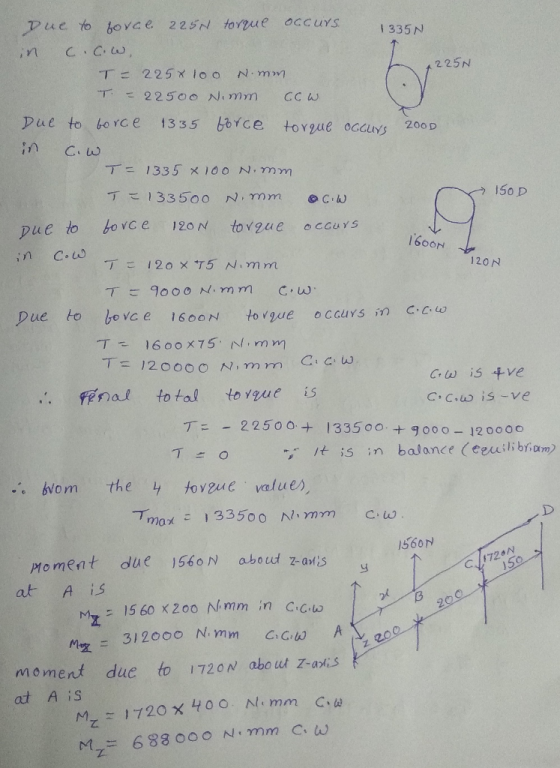 Due to force 225N torque occurs
in C.C.W.
1335N
225N
T = 225×100 N-mm
T = 22500 N.mm CCW
200D
Due to force 1335 force torque occurs
in C.W
T = 1335 ×100 N.mm
T = 133500 N.mm C.W
150 D
1600N
120N
Due to force 120N torque occurs
in C.W
T = 120 × 75 N.mm
T = 9000 N.mm C.W.
Due to force 1600N torque occurs in C.C.W
T = 1600×75 N.mm
T = 120000 N.mm C.C.W.
C.W is +ve
C.C.W is -ve
∴ Final total torque is
T = - 22500 + 133500 + 9000 - 120000
T = 0 ∵ It is in balance (equilibriam)
∴ from the 4 torque values,
Tmax = 133500 N.mm C.W.
Moment due 1560N about z-axis
at A is
Mz = 1560 ×200 N.mm in C.C.W
Mz = 312000 N.mm C.C.W
1560N
y
x
z
A
B
C
D
1720N
200
200
150
moment due to 1720N about z-axis
at A is
Mz = 1720 × 400 N.mm C.W
Mz = 688000 N.mm C.W